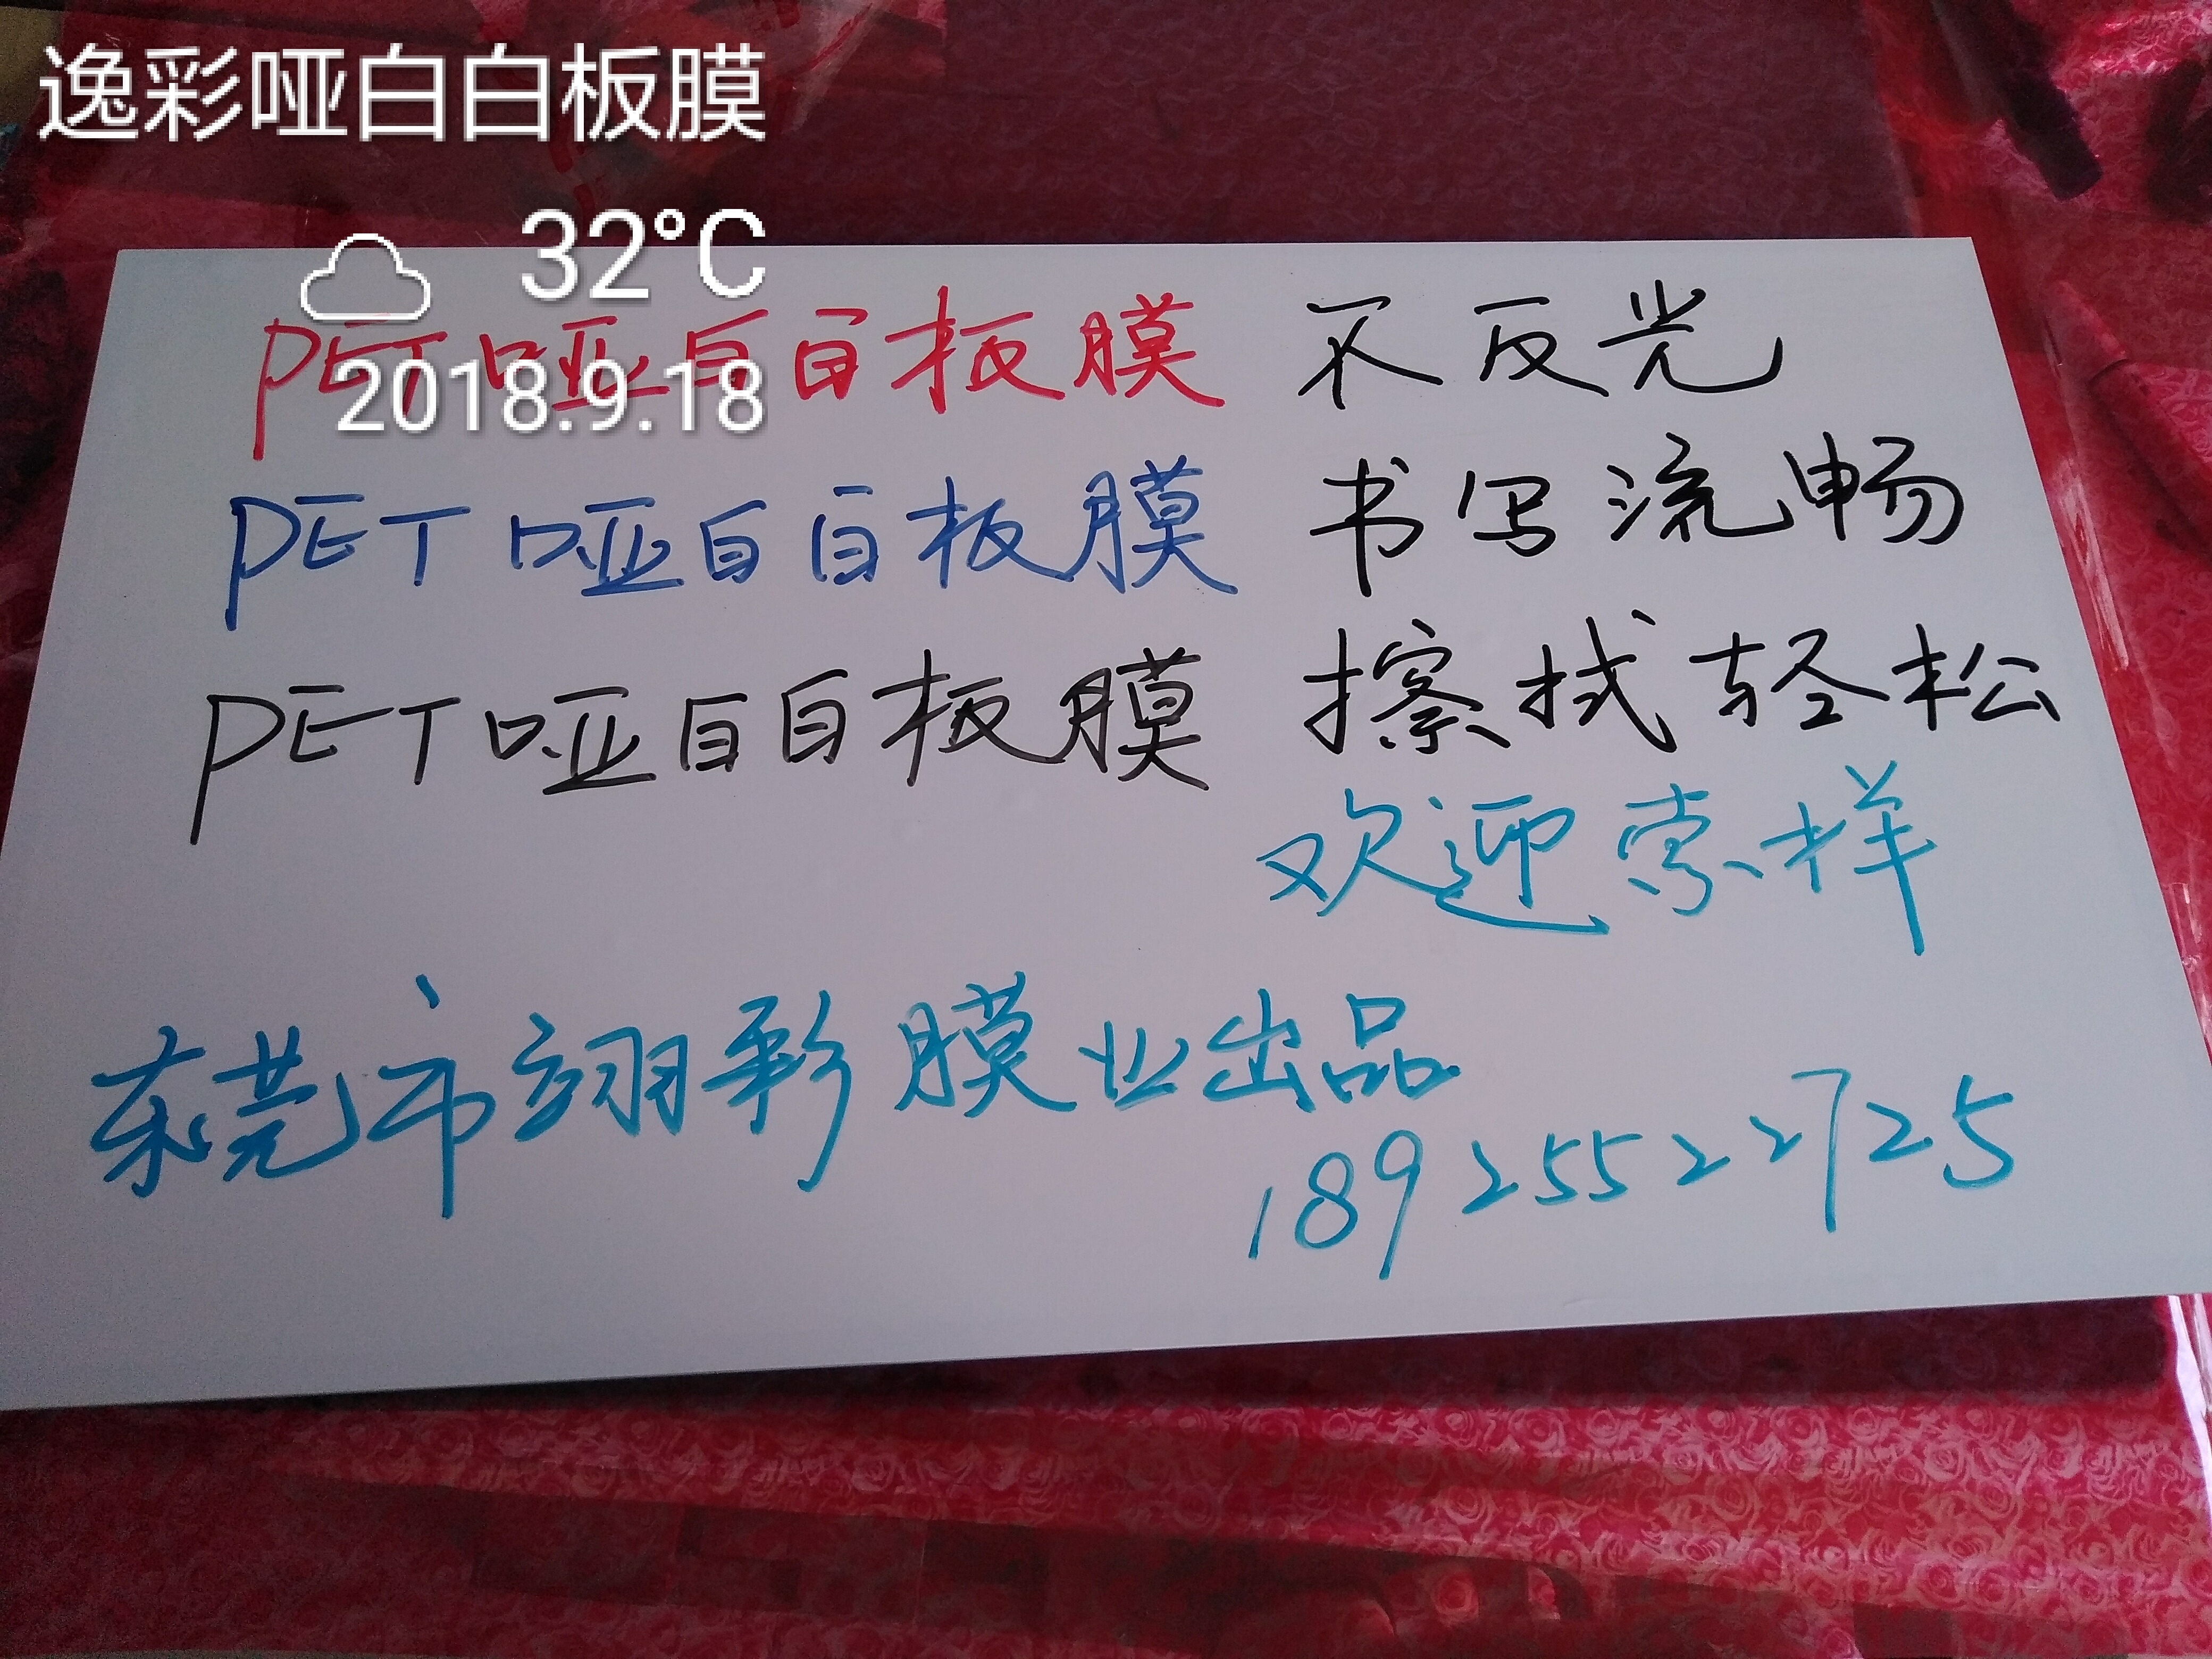 逸彩哑白白板膜
32°C
2018.9.18
PET哑白白板膜 不反光
PET哑白白板膜 书写流畅
PET哑白白板膜 擦拭轻松
欢迎索样
东莞市翊彩膜业出品
18925522725